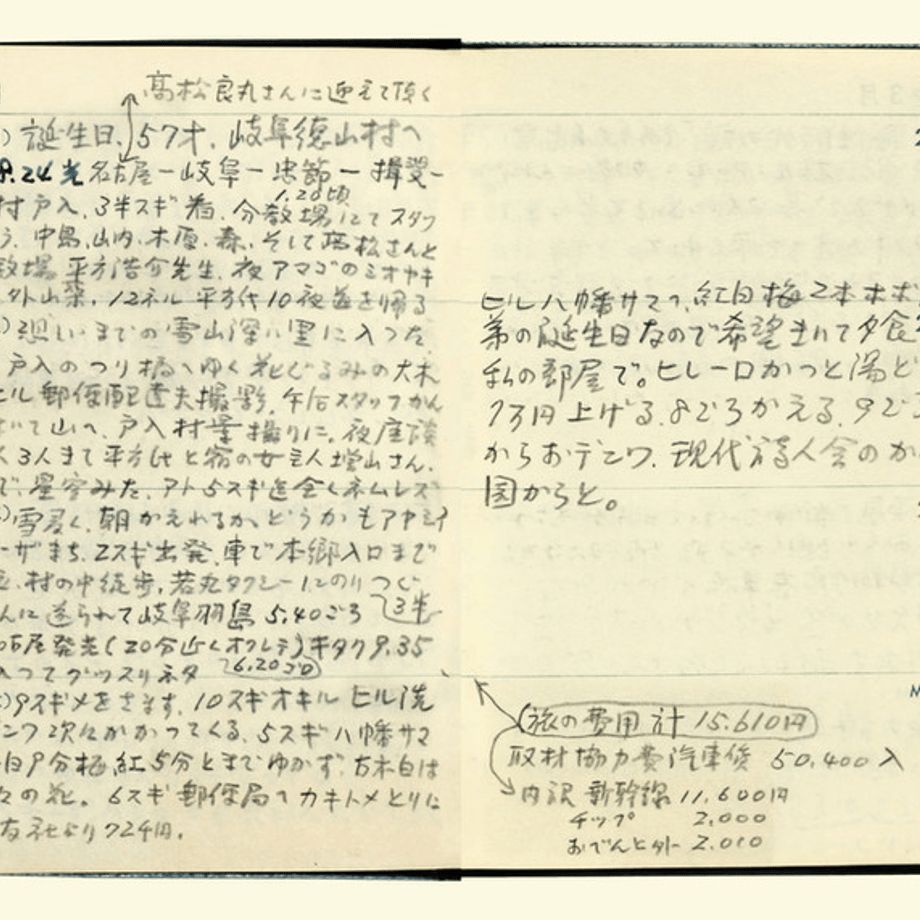 高松良丸さんに迎えて頂く
) 誕生日、57才、岐阜徳山村へ
9.24光 名古屋ー岐阜ー忠節ー揖斐ー
1.20頃
村戸入、3半スギ着、分教場にてスタッ
う、中島、山内、木原、森、そして高松さんと
教場 平方浩介先生、夜アマゴのミオヤキ
外山菜、12ネル 平方氏10夜道を帰る
)思いまでの雪山深い里に入った
戸入のつり橋へゆく 花ぐるみの大木
ヒル郵便配達夫撮影、午后スタッフかん
て山へ、戸入村 撮りに、夜座談
3人まで平方氏と宿の女主人増山さん、
で、星空みた、アト5スギ迄全くネムレズ
)雪 く、朝かえれるか、どうかもアヤシイ
ーザまち、2スギ出発、車で本郷入口まで
、村の中徒歩、若丸タクシーにのりつぐ
んに送られて岐阜羽島 5.40ごろ 3半
古屋発光(20分近くオクレテ)キタク9.35
入ってグッスリネタ 6.20ゴロ
)9スギメをさます、10スギオキル ヒル洗
ンワ次々かかってくる、5スギ八幡サマ
白9分梅紅5分とまでゆかず、古木白は
々の花。6スギ郵便局へカキトメとりに
友社より724円、
ヒル八幡サマへ、紅白梅2本ホボ
弟の誕生日なので希望されて夕食
私の部屋で。ヒレ一口かつと湯ど
1万円上げる、8ごろかえる、9ご
からおデンワ、現代詩人会のか
国からと。
(旅の費用 計 15.610円)
取材協力費汽車賃 50.400入
内訳 新幹線 11.600円
チップ 2.000
おでんと外 2.010